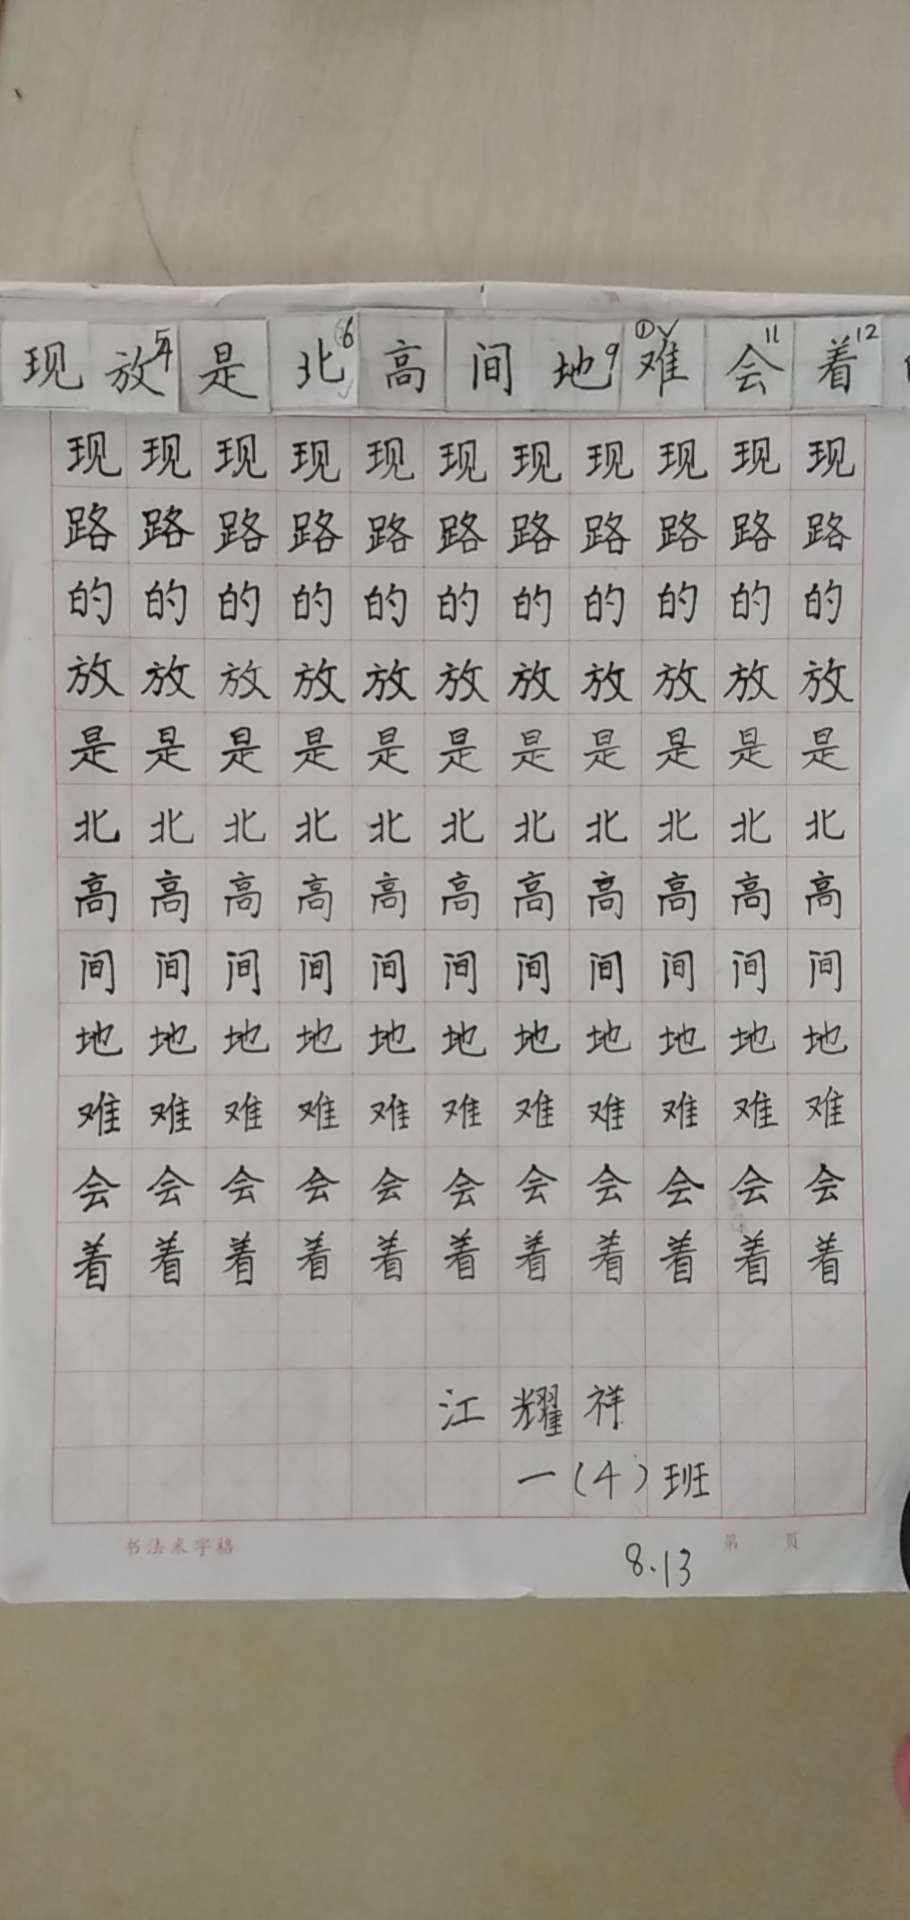 现 放 5 4 是 北 6 高 间 地 9 难 ① 会 11 着 12
现 现 现 现 现 现 现 现 现 现 现
路 路 路 路 路 路 路 路 路 路 路
的 的 的 的 的 的 的 的 的 的 的
放 放 放 放 放 放 放 放 放 放 放
是 是 是 是 是 是 是 是 是 是 是
北 北 北 北 北 北 北 北 北 北 北
高 高 高 高 高 高 高 高 高 高 高
间 间 间 间 间 间 间 间 间 间 间
地 地 地 地 地 地 地 地 地 地 地
难 难 难 难 难 难 难 难 难 难 难
会 会 会 会 会 会 会 会 会 会 会
着 着 着 着 着 着 着 着 着 着 着
江 耀 祥
一 (4) 班
书法米字稿 第 页
8.13